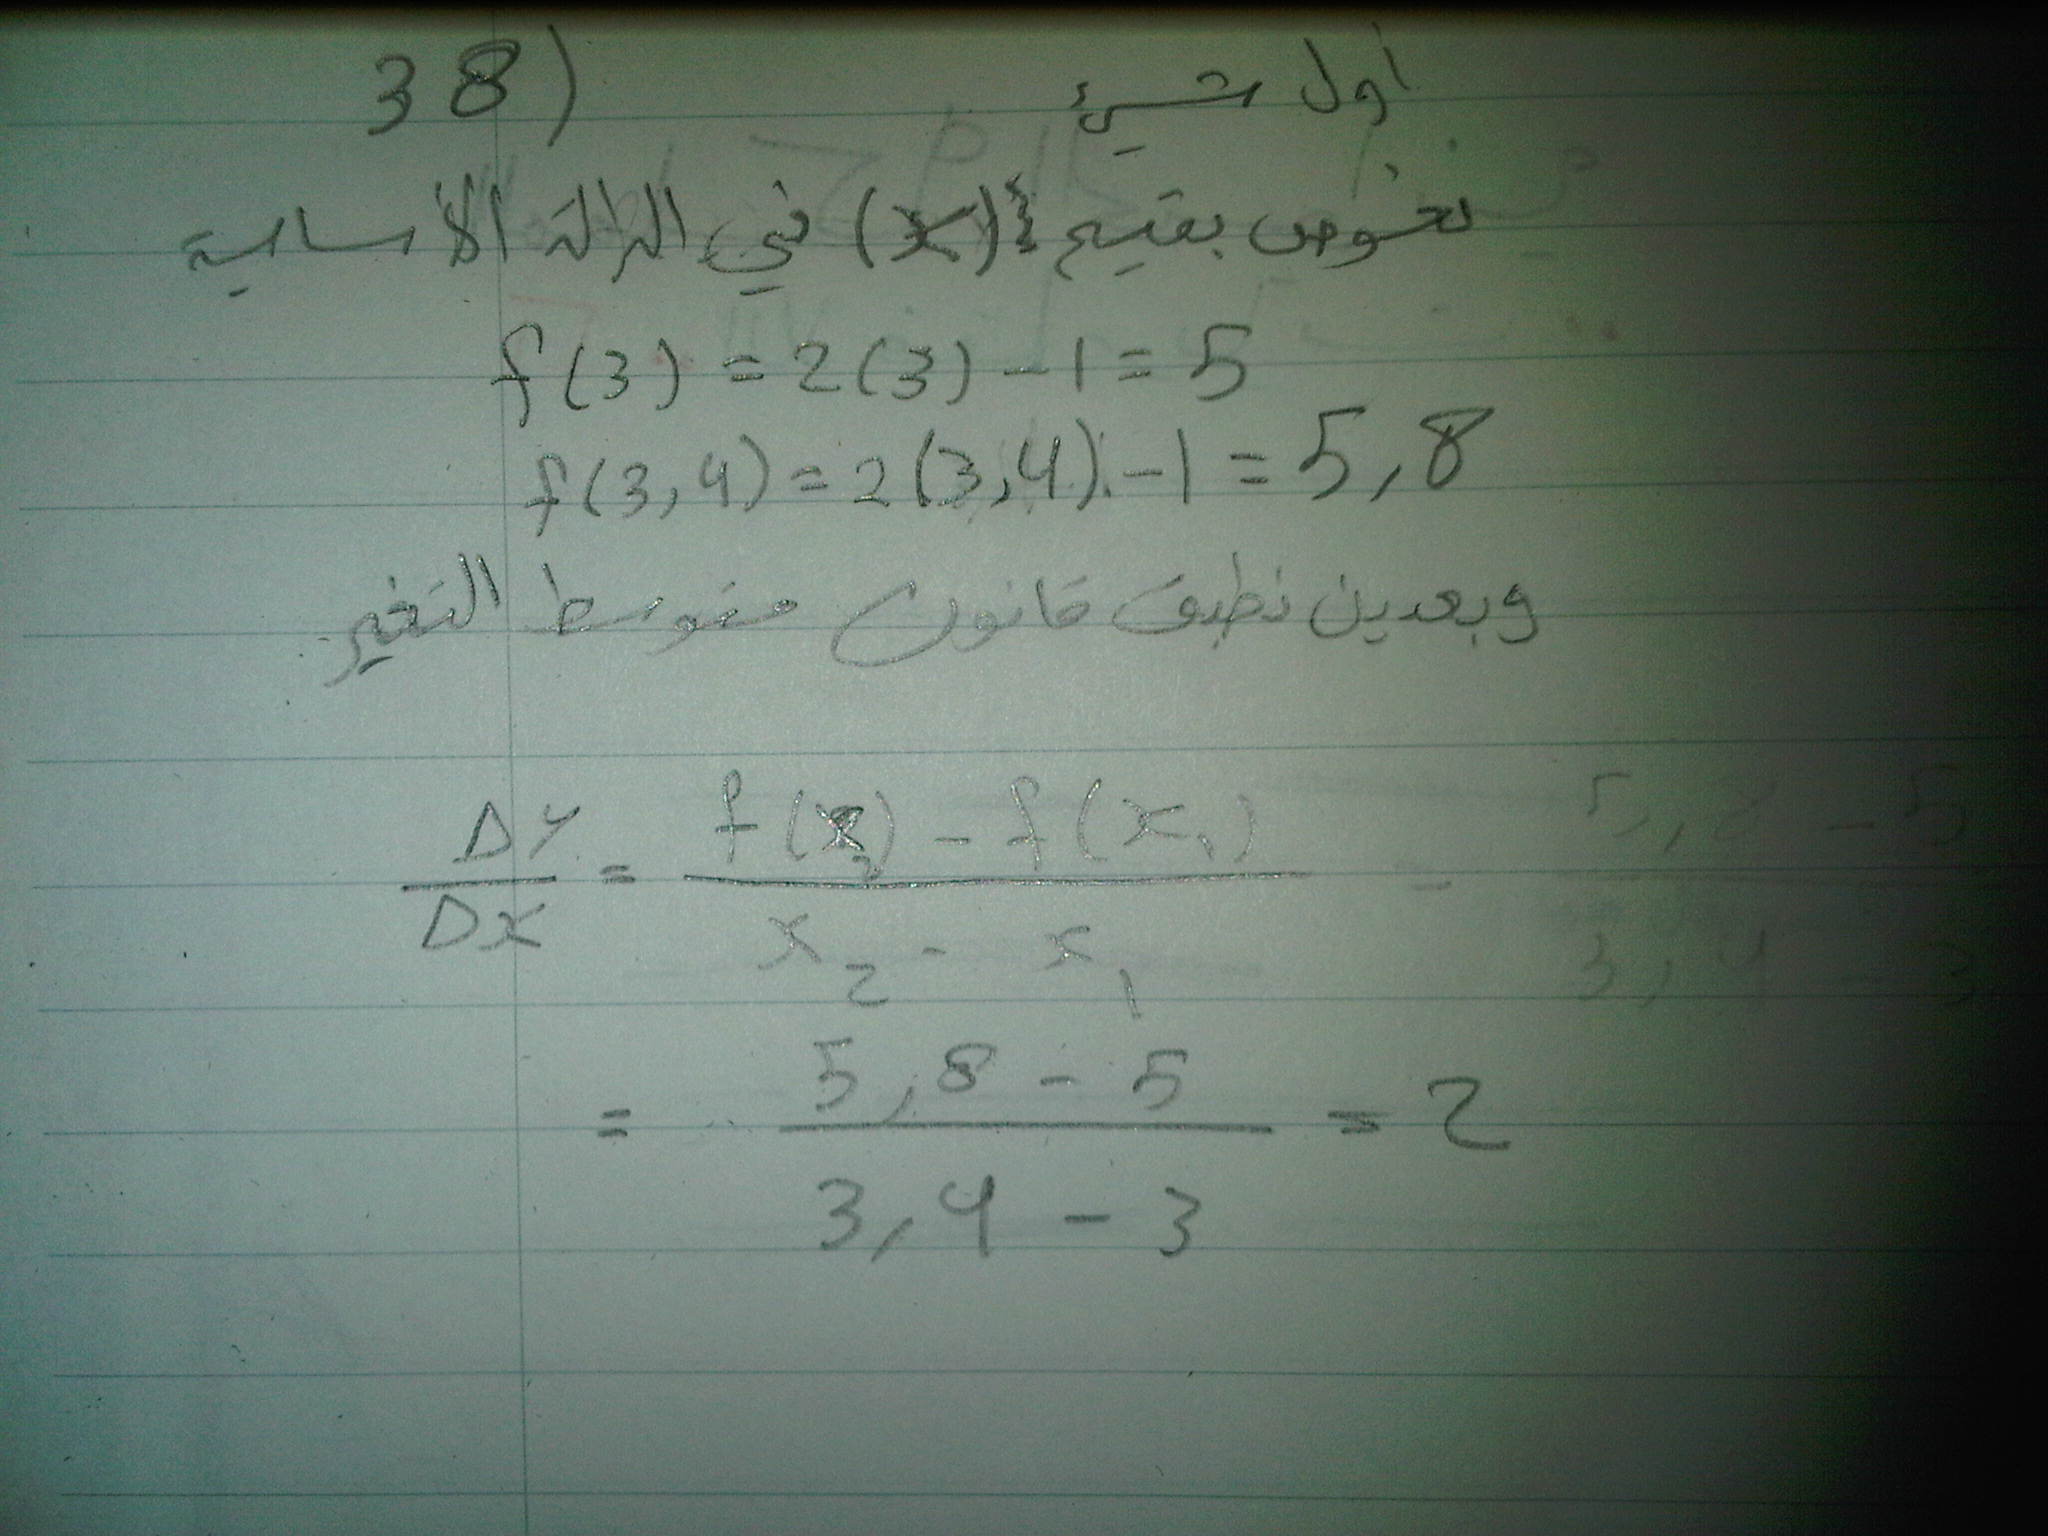 38) أول شيئ
نعوض بقيم (x) في الدالة الأساسية
f(3) = 2(3) - 1 = 5
f(3,4) = 2(3,4) - 1 = 5,8
وبعدين نطبق قانون متوسط التغير
Δy/Δx = f(x₂) - f(x₁) / x₂ - x₁
= 5,8 - 5 / 3,4 - 3 = 2